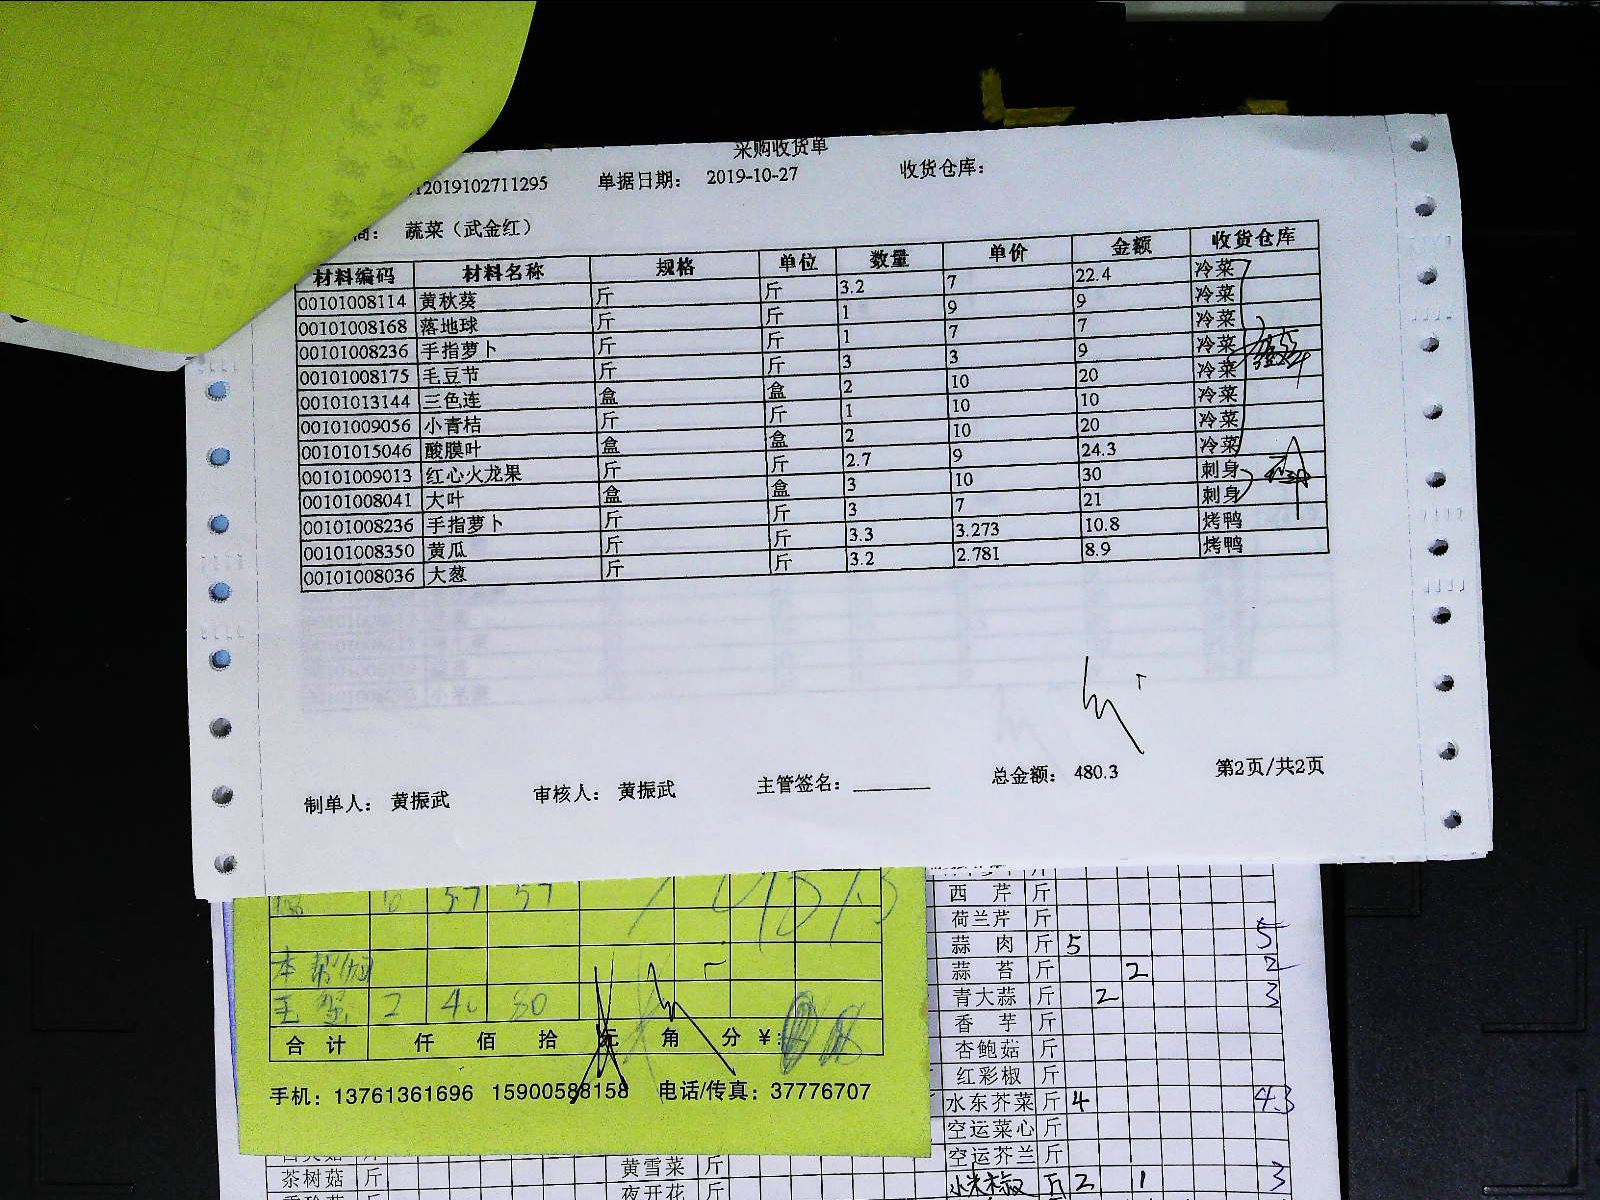 采购收货单
12019102711295 单据日期: 2019-10-27 收货仓库:
商: 蔬菜（武金红）
材料编码 材料名称 规格 单位 数量 单价 金额 收货仓库
00101008114 黄秋葵 斤 斤 3.2 7 22.4 冷菜
00101008168 落地球 斤 斤 1 9 9 冷菜
00101008236 手指萝卜 斤 斤 1 7 7 冷菜
00101008175 毛豆节 斤 斤 3 3 9 冷菜
00101013144 三色连 盒 盒 2 10 20 冷菜
00101009056 小青桔 斤 斤 1 10 10 冷菜
00101015046 酸膜叶 盒 盒 2 10 20 冷菜
00101009013 红心火龙果 斤 斤 2.7 9 24.3 冷菜
00101008041 大叶 盒 盒 3 10 30 刺身
00101008236 手指萝卜 斤 斤 3 7 21 刺身
00101008350 黄瓜 斤 斤 3.3 3.273 10.8 烤鸭
00101008036 大葱 斤 斤 3.2 2.781 8.9 烤鸭
制单人: 黄振武 审核人: 黄振武 主管签名: 总金额: 480.3 第2页/共2页
57 57
本帮
2 40 80
合计 仟 佰 拾 元 角 分 ¥:
手机: 13761361696 15900588158 电话/传真: 37776707
西芹 斤
荷兰芹 斤
蒜肉 斤 5 5
蒜苔 斤 2 2
青大蒜 斤 2 3
香芋 斤
杏鲍菇 斤
红彩椒 斤
水东芥菜 斤 4 4.3
空运菜心 斤
空运芥兰 斤
茶树菇 斤 黄雪菜 斤 小米椒 斤 2 1 3
夜开花 斤